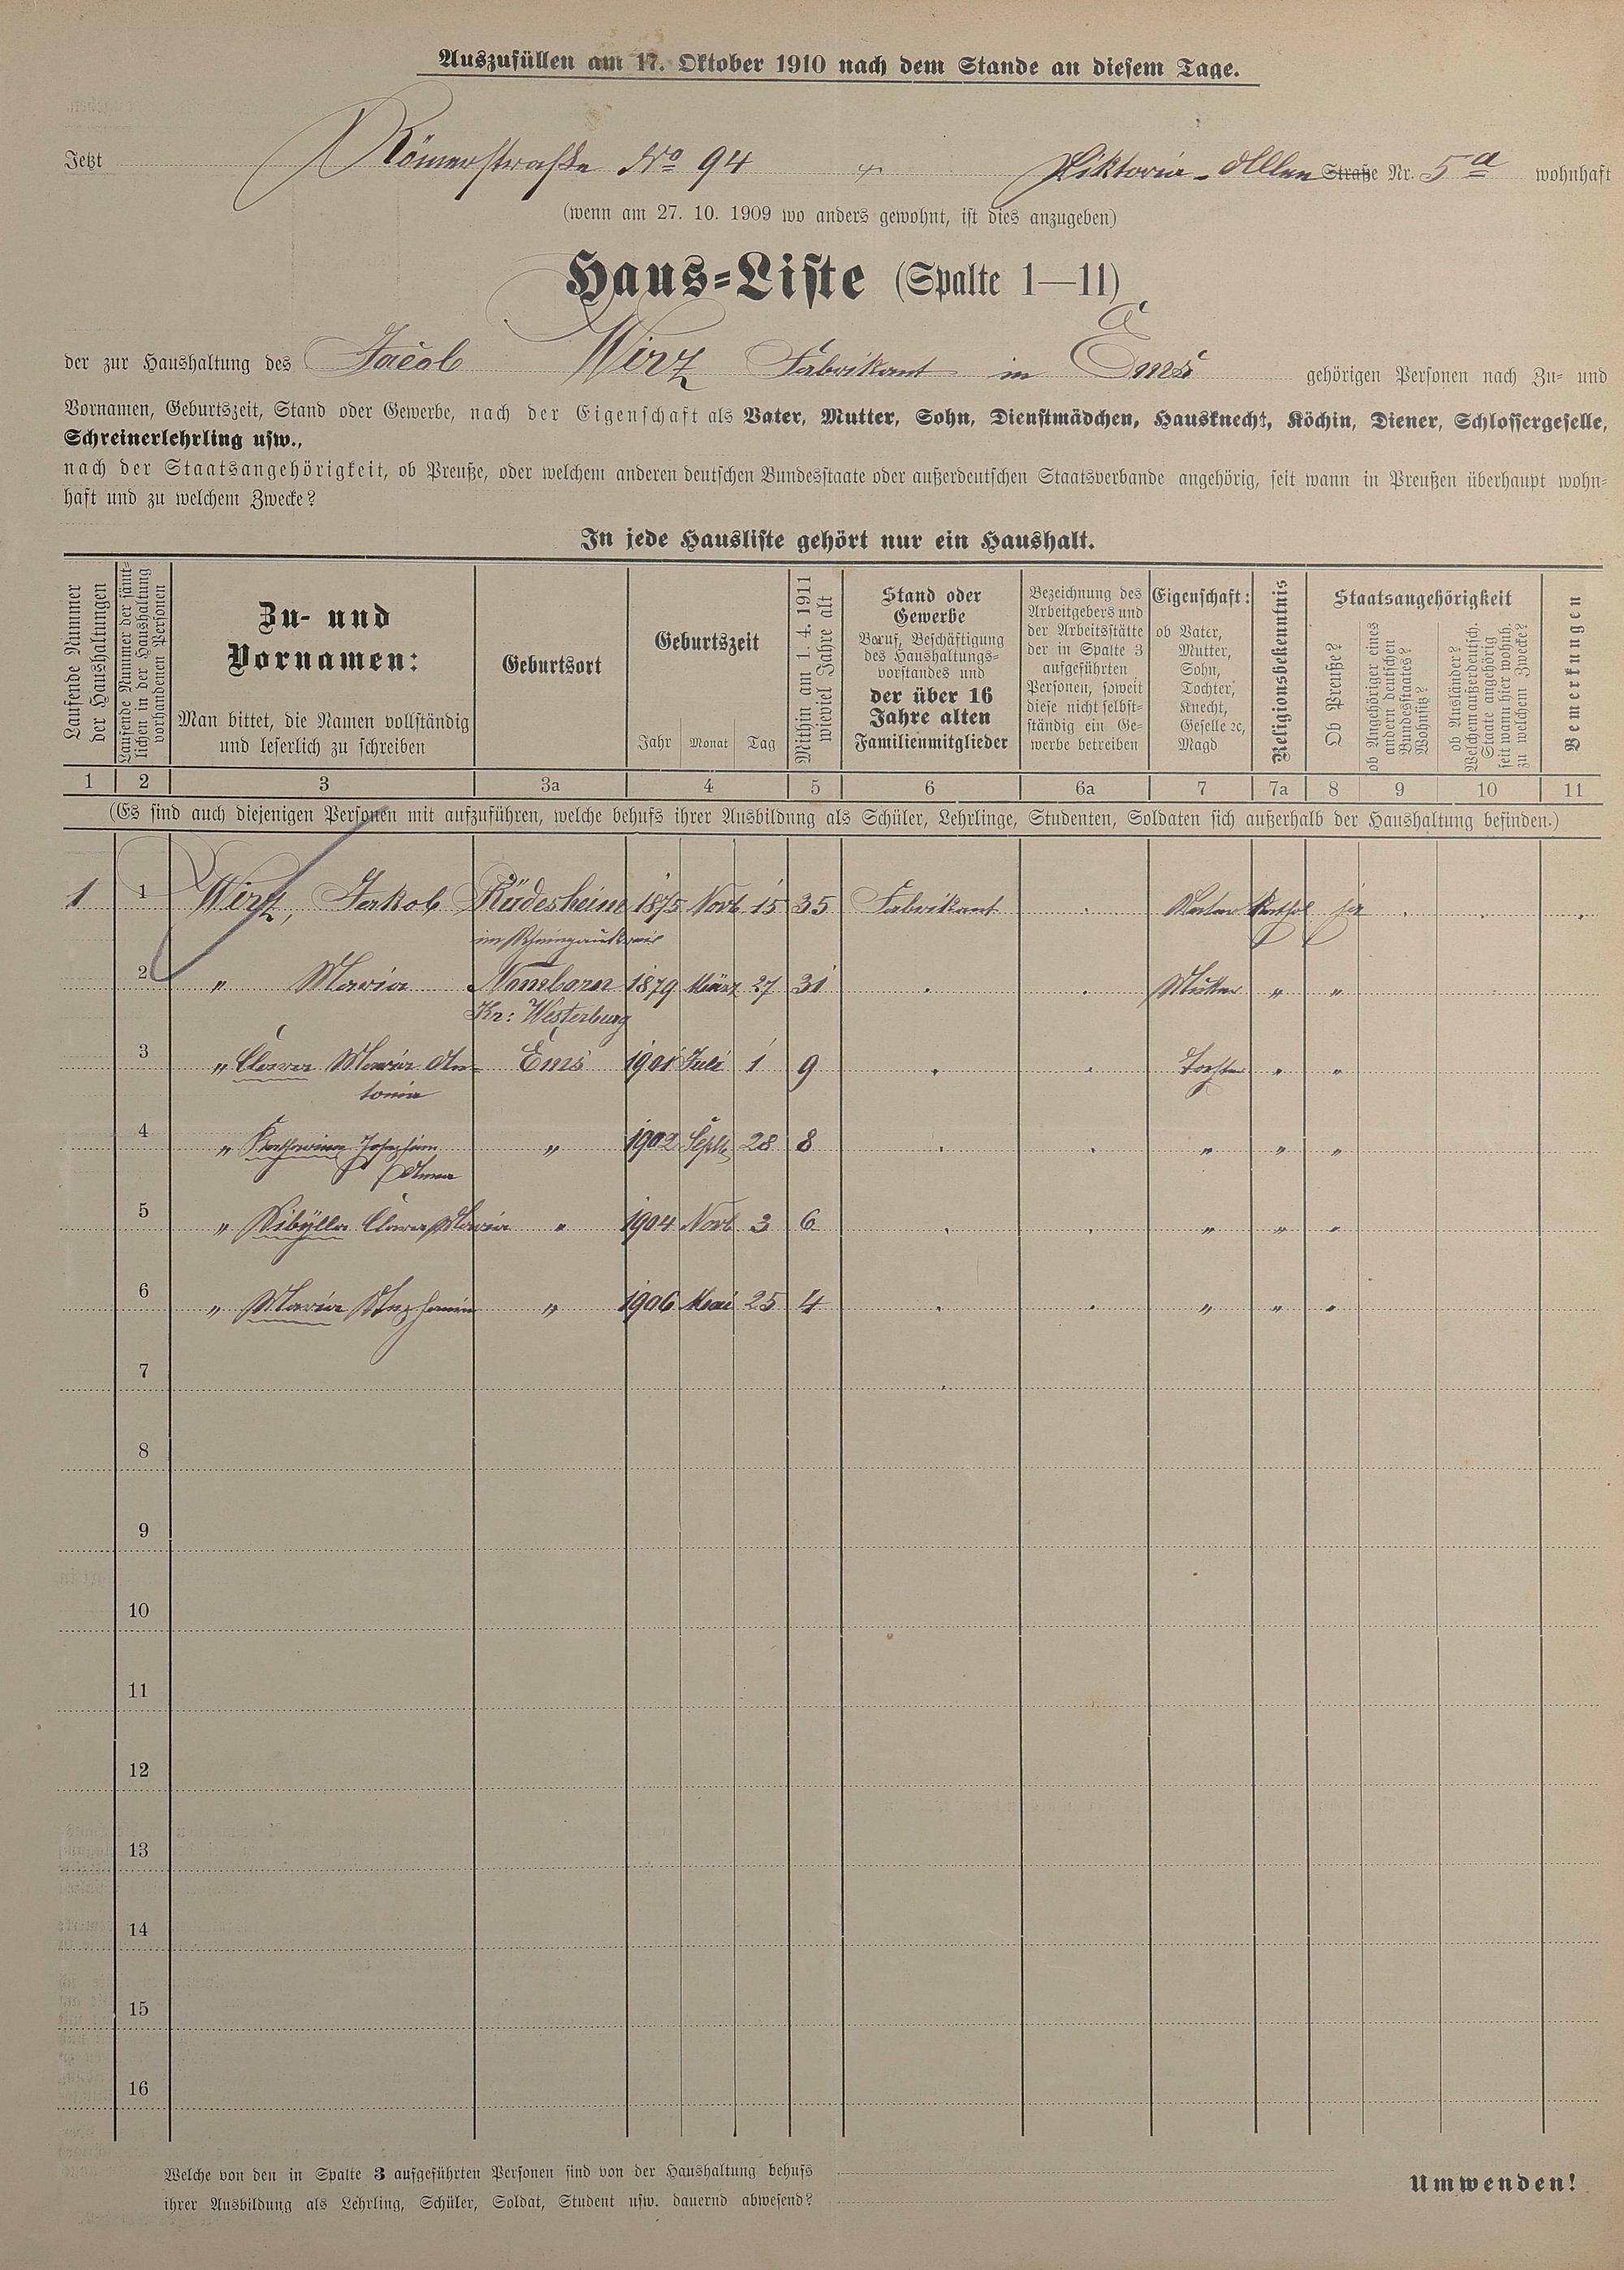 Auszufüllen am 17. Oktober 1910 nach dem Stande an diesem Tage.
Jetzt Römerstraße No 94 Viktoria-Allee Straße Nr. 5a wohnhaft
(wenn am 27. 10. 1909 wo anders gewohnt, ist dies anzugeben)
Haus-Liste (Spalte 1—11)
der zur Haushaltung des Jacob Wirz Fabrikant in Ems gehörigen Personen nach Zu- und
Vornamen, Geburtszeit, Stand oder Gewerbe, nach der Eigenschaft als Vater, Mutter, Sohn, Dienstmädchen, Hausknecht, Köchin, Diener, Schlossergeselle,
Schreinerlehrling usw.,
nach der Staatsangehörigkeit, ob Preuße, oder welchem anderen deutschen Bundesstaate oder außerdeutschen Staatsverbande angehörig, seit wann in Preußen überhaupt wohn-
haft und zu welchem Zwecke?
In jede Hausliste gehört nur ein Haushalt.
Laufende Nummer
der Haushaltungen
Laufende Nummer der sämt-
lichen in der Haushaltung
vorhandenen Personen
Zu- und
Vornamen:
Man bittet, die Namen vollständig
und leserlich zu schreiben
Geburtsort
Geburtszeit
Jahr Monat Tag
Mithin am 1. 4. 1911
wieviel Jahre alt
Stand oder
Gewerbe
Beruf, Beschäftigung
des Haushaltungs-
vorstandes und
der über 16
Jahre alten
Familienmitglieder
Bezeichnung des
Arbeitgebers und
der Arbeitsstätte
der in Spalte 3
aufgeführten
Personen, soweit
diese nicht selbst-
ständig ein Ge-
werbe betreiben
Eigenschaft:
ob Vater,
Mutter,
Sohn,
Tochter,
Knecht,
Geselle ec,
Magd
Religionsbekenntnis
Staatsangehörigkeit
Ob Preuße?
ob Angehöriger eines
andern deutschen
Bundesstaates?
Wohnsitz?
ob Ausländer?
Welchem außerdeutsch.
Staate angehörig
seit wann hier wohnh.
zu welchem Zwecke?
Bemerkungen
1 2 3 3a 4 5 6 6a 7 7a 8 9 10 11
(Es sind auch diejenigen Personen mit aufzuführen, welche behufs ihrer Ausbildung als Schüler, Lehrlinge, Studenten, Soldaten sich außerhalb der Haushaltung befinden.)
1 1 Wirz, Jakob Rüdesheim 1875 Novb 15 35 Fabrikant Vater Kathol ja
im Rheingaukreis
2 " Maria Nomborn 1879 März 27 31 Mutter " "
Kr: Westerburg
3 " Clara Maria An- Ems 1901 Juli 1 9 Tochter " "
tonia
4 " Katharina Josephine " 1902 Septb 28 8 " " "
Anna
5 " Sibÿlla Clara Maria " 1904 Novb 3 6 " " "
6 " Maria Stephanie " 1906 Mai 25 4 " " "
7
8
9
10
11
12
13
14
15
16
Welche von den in Spalte 3 aufgeführten Personen sind von der Haushaltung behufs
ihrer Ausbildung als Lehrling, Schüler, Soldat, Student usw. dauernd abwesend?
Umwenden!